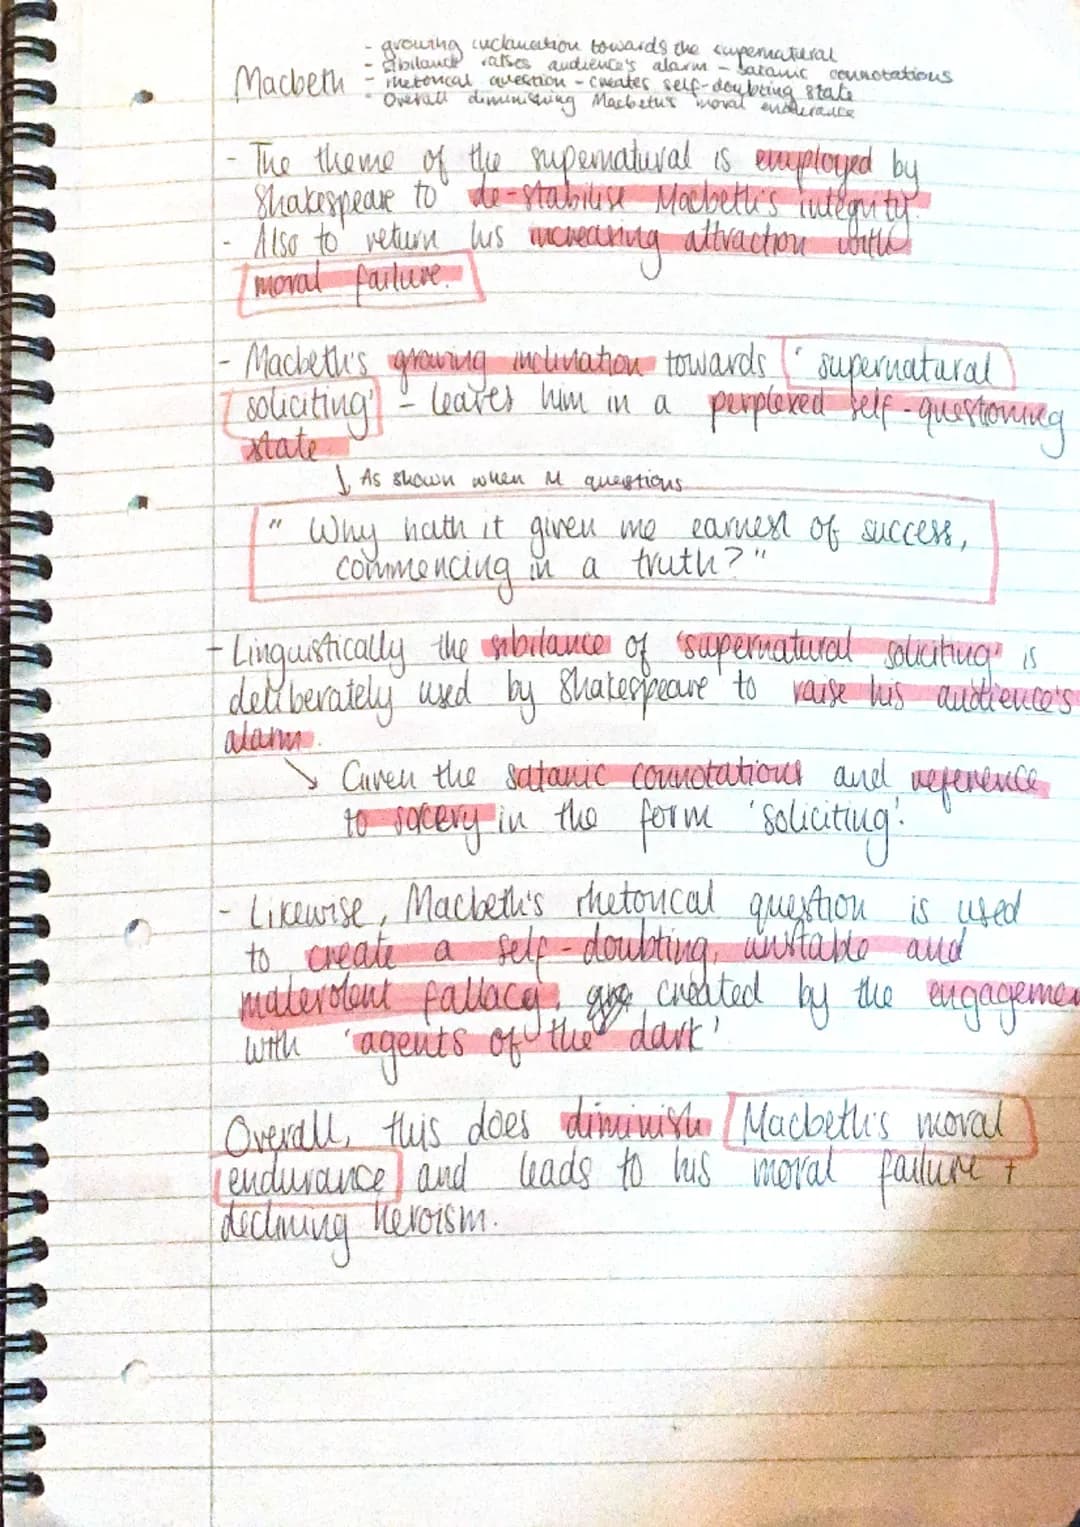 - growing inclanation towards the supernatural
- sibilance raises audience's alarm - satanic connotations
Macbeth - rhetorical question - creates self-doubting state
- Overall diminishing Macbeth's moral endurance
- The theme of the supernatural is employed by
Shakespeare to de-stabilise Macbeth's integrity.
- Also to return his increasing attraction with
moral failure.
- Macbeth's growing inclination towards 'supernatural
soliciting' - leaves him in a perplexed self-questioning
state
↓ As shown when M questions
" Why hath it given me earnest of success,
commencing in a truth?"
- Linguistically the sibilance of 'supernatural soliciting' is
deliberately used by Shakespeare to raise his audience's
alarm.
↘ Given the satanic connotations and reference
to socery in the form 'soliciting'.
- Likewise, Macbeth's rhetorical question is used
to create a self-doubting, unstable and
malevolent fallacy, created by the engagemen
with 'agents of the dark'
Overall, this does diminish Macbeth's moral
endurance and leads to his moral failure +
declining heroism.